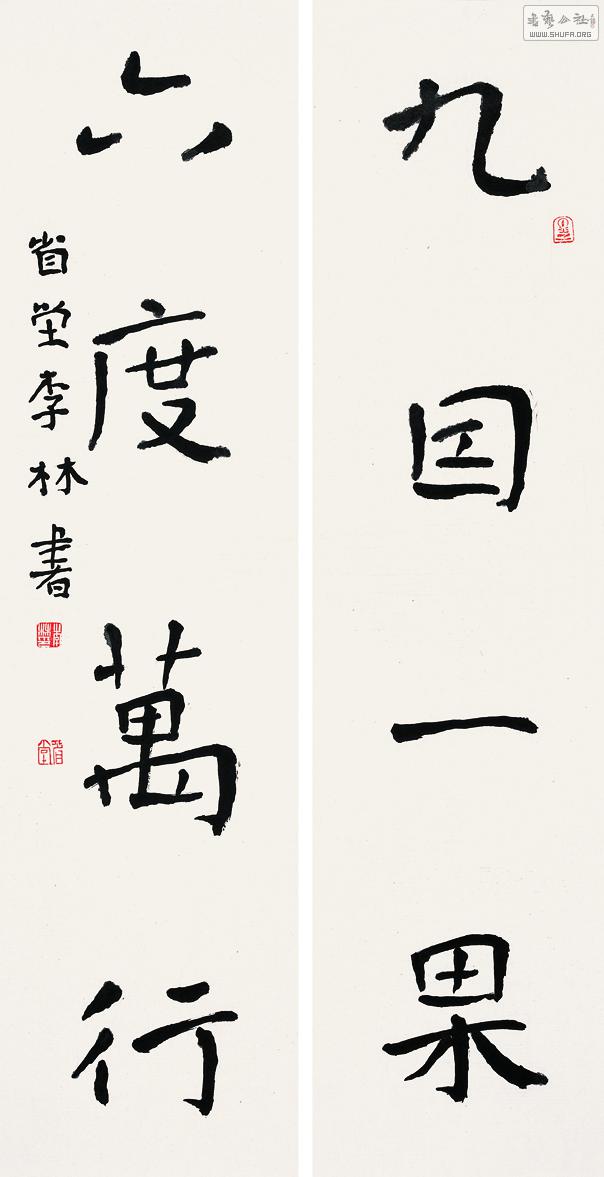 九因一果
六度萬行
省堂李林書
書藝公社
WWW.SHUFA.ORG